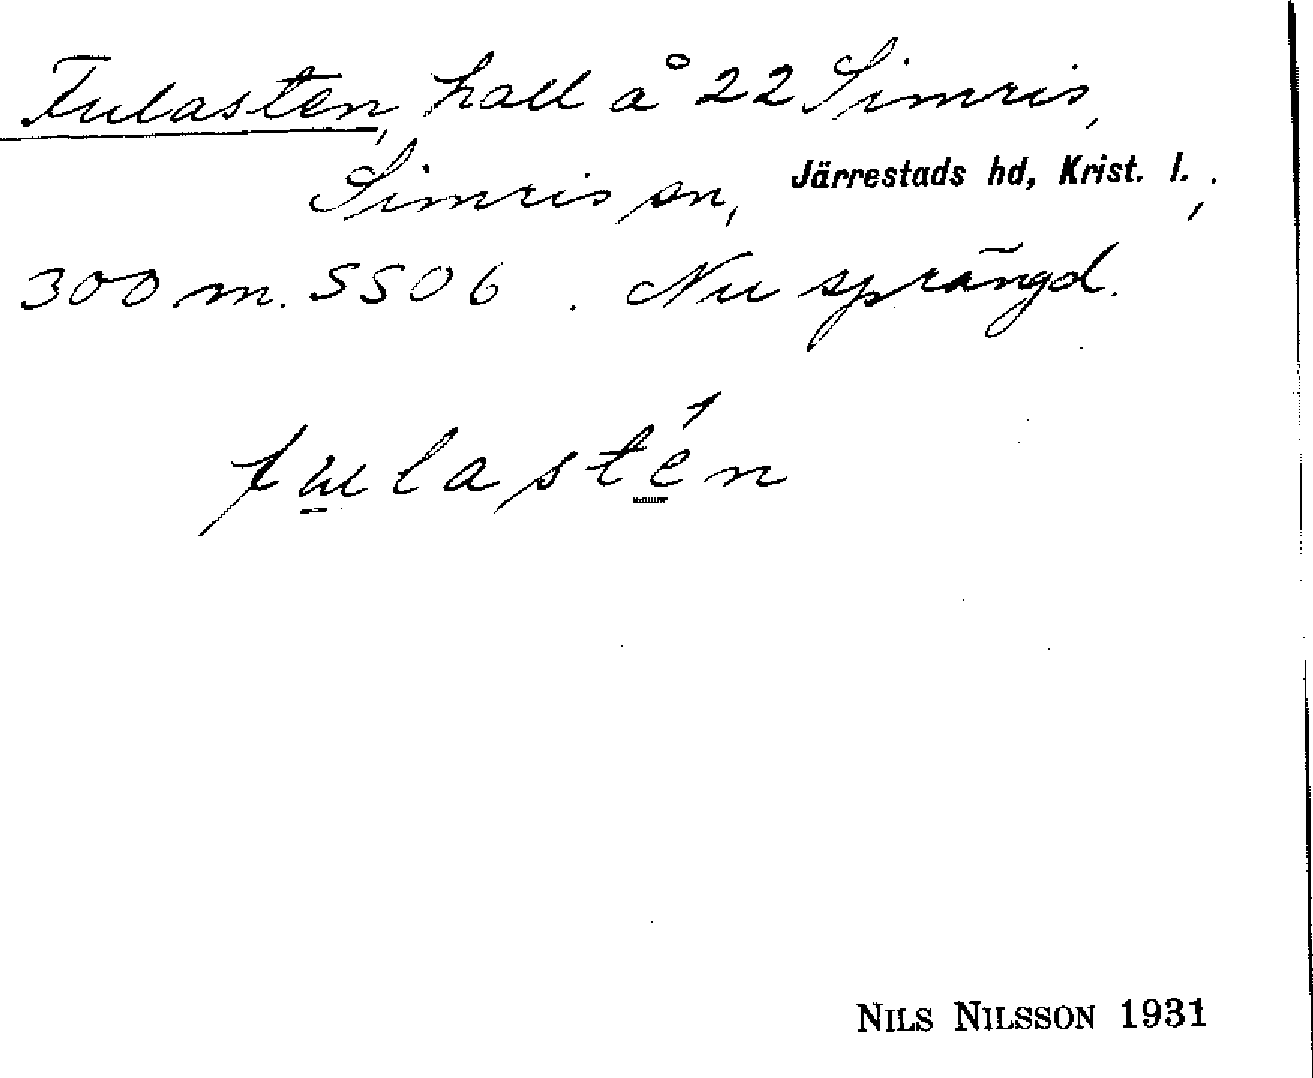 Fulasten, hall å 22 Simris,
Simris sn, Järrestads hd, Krist. l.,
300 m. SSO 6. Nu sprängd.
fulastén
NILS NILSSON 1931